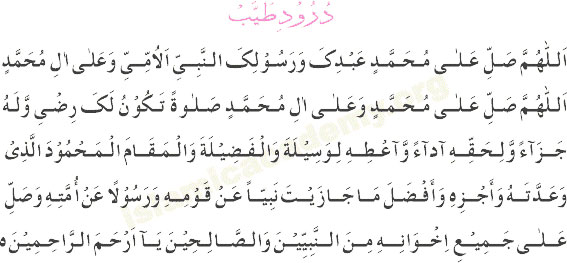 دُرُودِ طَیِّبْ
اَللّٰهُمَّ صَلِّ عَلٰى مُحَمَّدٍ عَبْدِکَ وَرَسُوْلِکَ النَّبِيِّ الْاُمِّيِّ وَعَلٰى اٰلِ مُحَمَّدٍ
اَللّٰهُمَّ صَلِّ عَلٰى مُحَمَّدٍ وَّعَلٰى اٰلِ مُحَمَّدٍ صَلٰوةً تَکُوْنُ لَکَ رِضًى وَّلَهٗ
جَزَآءً وَّلِحَقِّهٖ اَدَآءً وَّاَعْطِهِ لِوَسِيْلَةَ وَالْفَضِيْلَةَ وَالْمَقَامَ الْمَحْمُوْدَ الَّذِىْ
وَعَدْتَهٗ وَاَجْزِهٖ وَاَفْضَلَ مَا جَازَيْتَ نَبِيًّا عَنْ قَوْمِهٖ وَرَسُوْلًا عَنْ اُمَّتِهٖ وَصَلِّ
عَلٰى جَمِيْعِ اِخْوَانِهٖ مِنَ النَّبِيِّيْنَ وَالصَّالِحِيْنَ يَآ اَرْحَمَ الرَّاحِمِيْنَ ه
islamicacademy.org